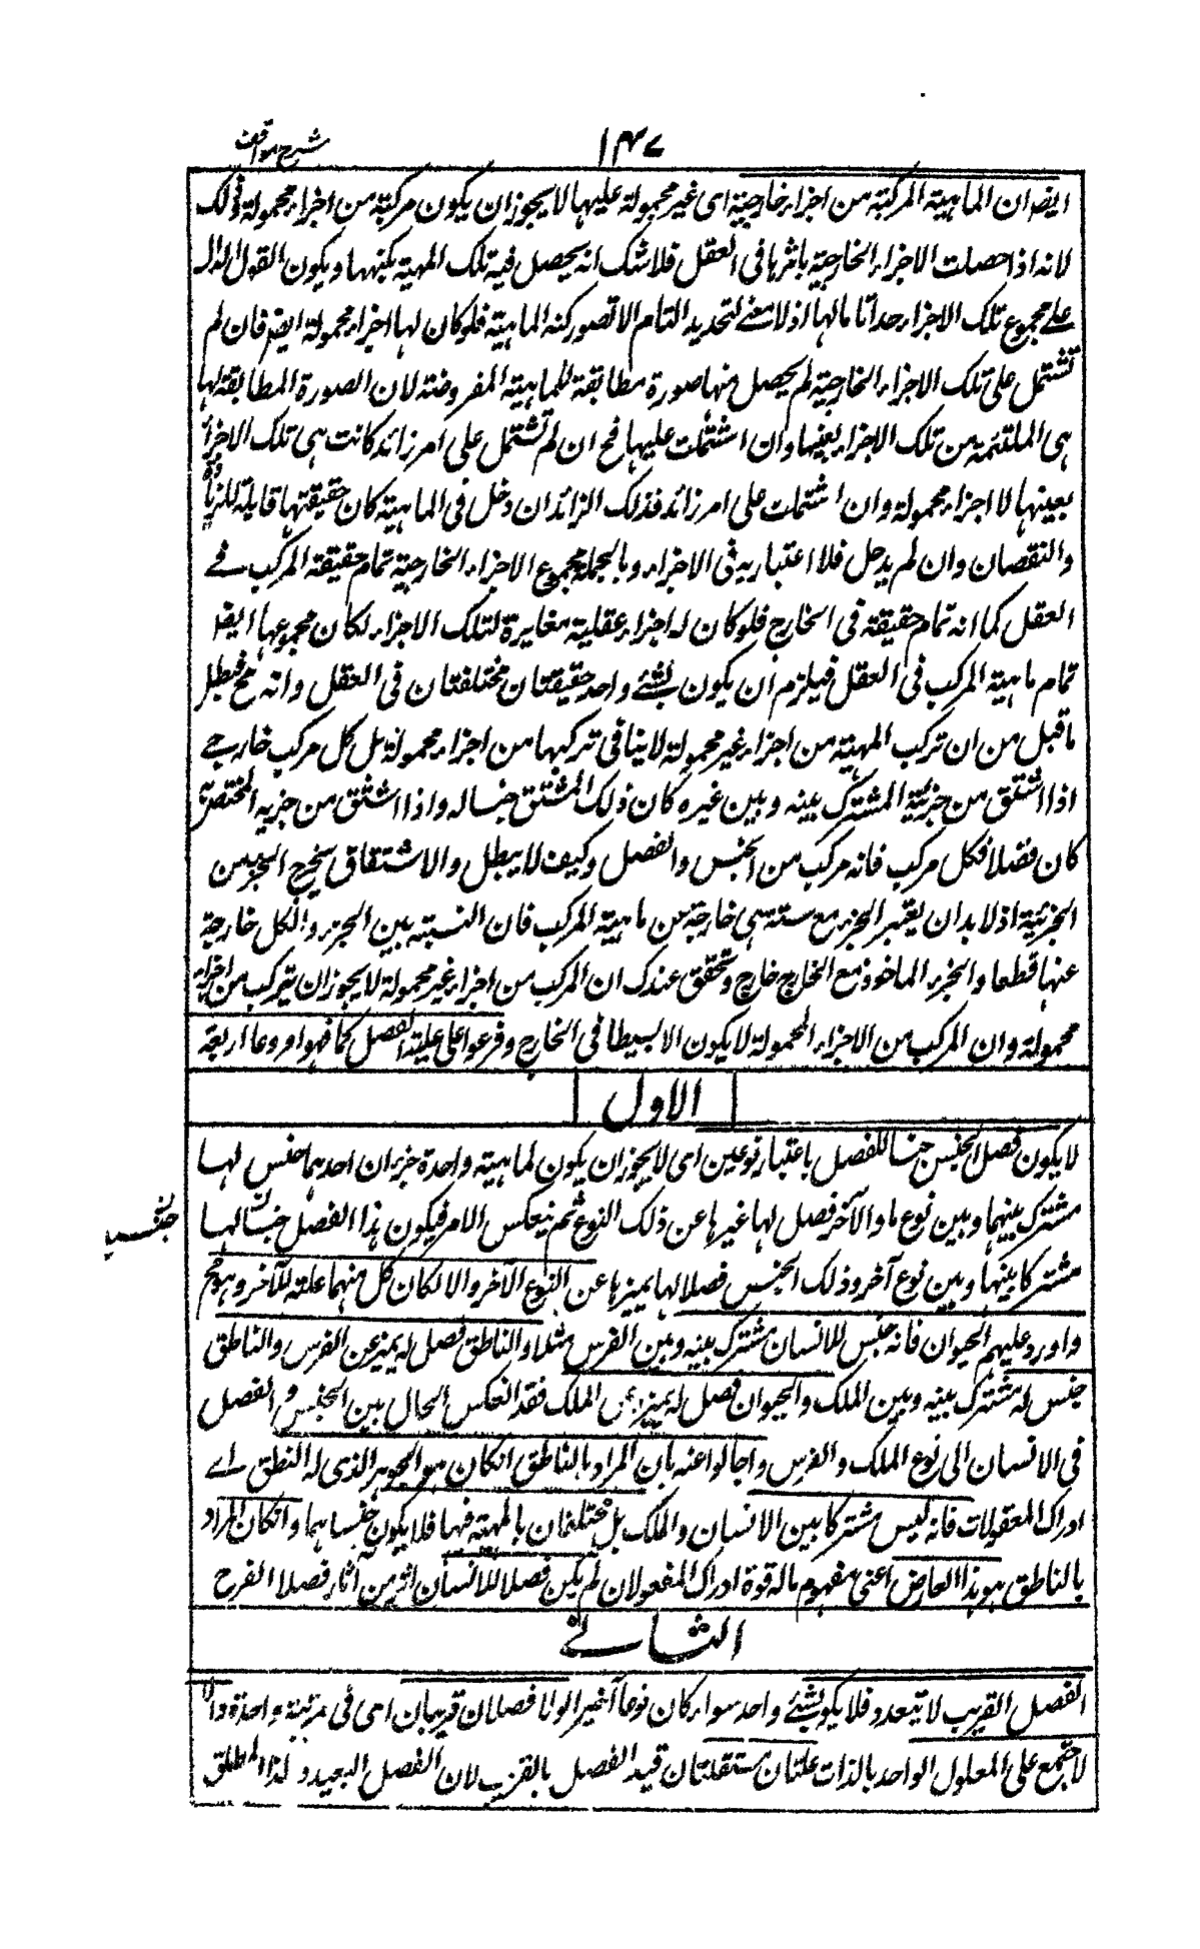 شرح مواقف
١٤٧
ايضا ان الماهية المركبة من اجزاء خارجية اى غير محمولة عليها لا يجوز ان يكون مركبة من اجزاء محمولة وذلك
لانه اذا حصلت الاجزاء الخارجية باثرها فى العقل فلا شك انه يحصل فيه تلك المهية بكنهها ويكون القول الدال
على مجموع تلك الاجزاء حدا تاما لها اذ لا معنى لتحديد التام الا تصور كنه الماهية فلو كان لها اجزاء محمولة ايضا فان لم
تشتمل على تلك الاجزاء الخارجية لم يحصل منها صورة مطابقة للماهية المفروضة لان الصورة المطابقة لها
هى الملتئمة من تلك الاجزاء بعينها وان اشتملت عليها فح ان لم تشتمل على امر زائد كانت هى تلك الاجزاء
بعينها لا اجزاء محمولة وان اشتملت على امر زائد فذلك الزائد ان دخل فى الماهية كان حقيقتها قابلة للزيادة
والنقصان وان لم يدخل فلا اعتبار به فى الاجزاء وبالجملة مجموع الاجزاء الخارجية تمام حقيقة المركب فى
العقل كما انه تمام حقيقة فى الخارج فلو كان له اجزاء عقلية مغايرة لتلك الاجزاء لكان مجموعها ايضا
تمام ماهية المركب فى العقل فيلزم ان يكون لشئ واحد حقيقتان مختلفتان فى العقل وانه مح فبطل
ما قيل من ان تركب المهية من اجزاء غير محمولة لا ينافى تركبها من اجزاء محمولة بل كل مركب خارجى
اذا اشتق من جزئية المشترك بينه وبين غيره كان ذلك المشتق جنسا له واذا اشتق من جزيه المختص
كان فصلا فكل مركب فانه مركب من الجنس والفصل وكيف لا يبطل والاشتقاق يخرج الجزء من
الجزئية اذ لا بد ان يعتبر الجزء مع نسبة هى خارجة من ماهية المركب فان النسبة بين الجزء والكل خارجة
عنها قطعا والجزء الماخوذ مع الخارج خارج وتحقق عندك ان المركب من اجزاء غير محمولة لا يجوز ان يتركب من اجزاء
محمولة وان المركب من الاجزاء المحمولة لا يكون الا بسيطا فى الخارج وفرعوا على علية الفصل كما فهموا فروعا اربعة
الاول
لا يكون فصل الجنس جنسا للفصل باعتبار نوعين اى لا يجوز ان يكون لماهية واحدة جزءان احدهما جنس لها
مشترك بينهما وبين نوع ما والآخر فصل لها غيرها عن ذلك النوع ثم ينعكس الامر فيكون هذا الفصل جنسا لها
مشتركا بينها وبين نوع آخر وذلك الجنس فصلا لها يميزها عن النوع الآخر والا لكان كل منهما علة للآخر وهو مح
واورد عليهم الحيوان فانه جنس للانسان مشترك بينه وبين الفرس مثلا والناطق فصل له يميزه عن الفرس والناطق
جنس له مشترك بينه وبين الملك والحيوان فصل له يميزه عن الملك فقد انعكس الحال بين الجنس والفصل
فى الانسان الى نوع الملك والفرس واجابوا عنه بان المراد بالناطق ان كان هو الجوهر الذى له النطق اى
ادراك المعقولات فانه ليس مشتركا بين الانسان والملك بل مختلفان بالمهية فيها فلا يكون جنسا لهما وان كان المراد
بالناطق هو هذا العارض اعنى مفهوم ماله قوة ادراك المعقولات لم يكن فصلا للانسان اثر من آثار فصلا الفرح
الثانى
الفصل القريب لا يتعدد فلا يكون لشئ واحد سواء كان نوعا اخيرا او لا فصلان قريبان اى فى مرتبة واحدة والا
لاجتمع على المعلول الواحد بالذات علتان مستقلتان قيد الفصل بالقريب لان الفصل البعيد و لهذا المطلق